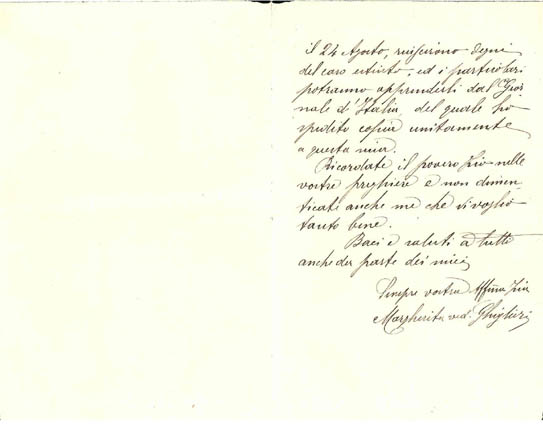 il 24 Agosto, riuscirono degni
del caro estinto, ed i particolari
potranno apprenderli dal "Gior
nale d'Italia" del quale ho
spedito copia unitamente
a questa mia.
Ricordate il povero Zio nelle
vostre preghiere e non dimen
ticate anche me che vi voglio
tanto bene.
Baci e saluti a tutti
anche da parte dei miei
Sempre vostra Affma Zia
Margherita ved.